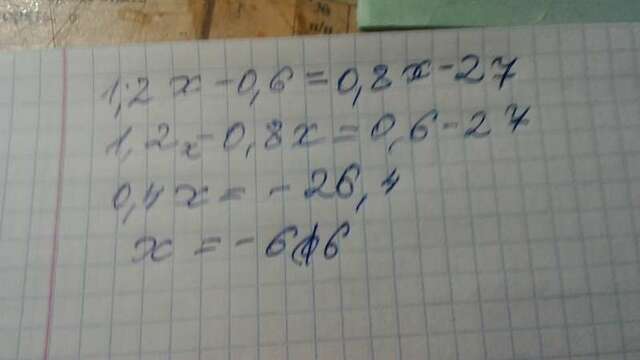 1,2x-0,6=0,8x-27
1,2x-0,8x=0,6-27
0,4x=-26,4
x=-66